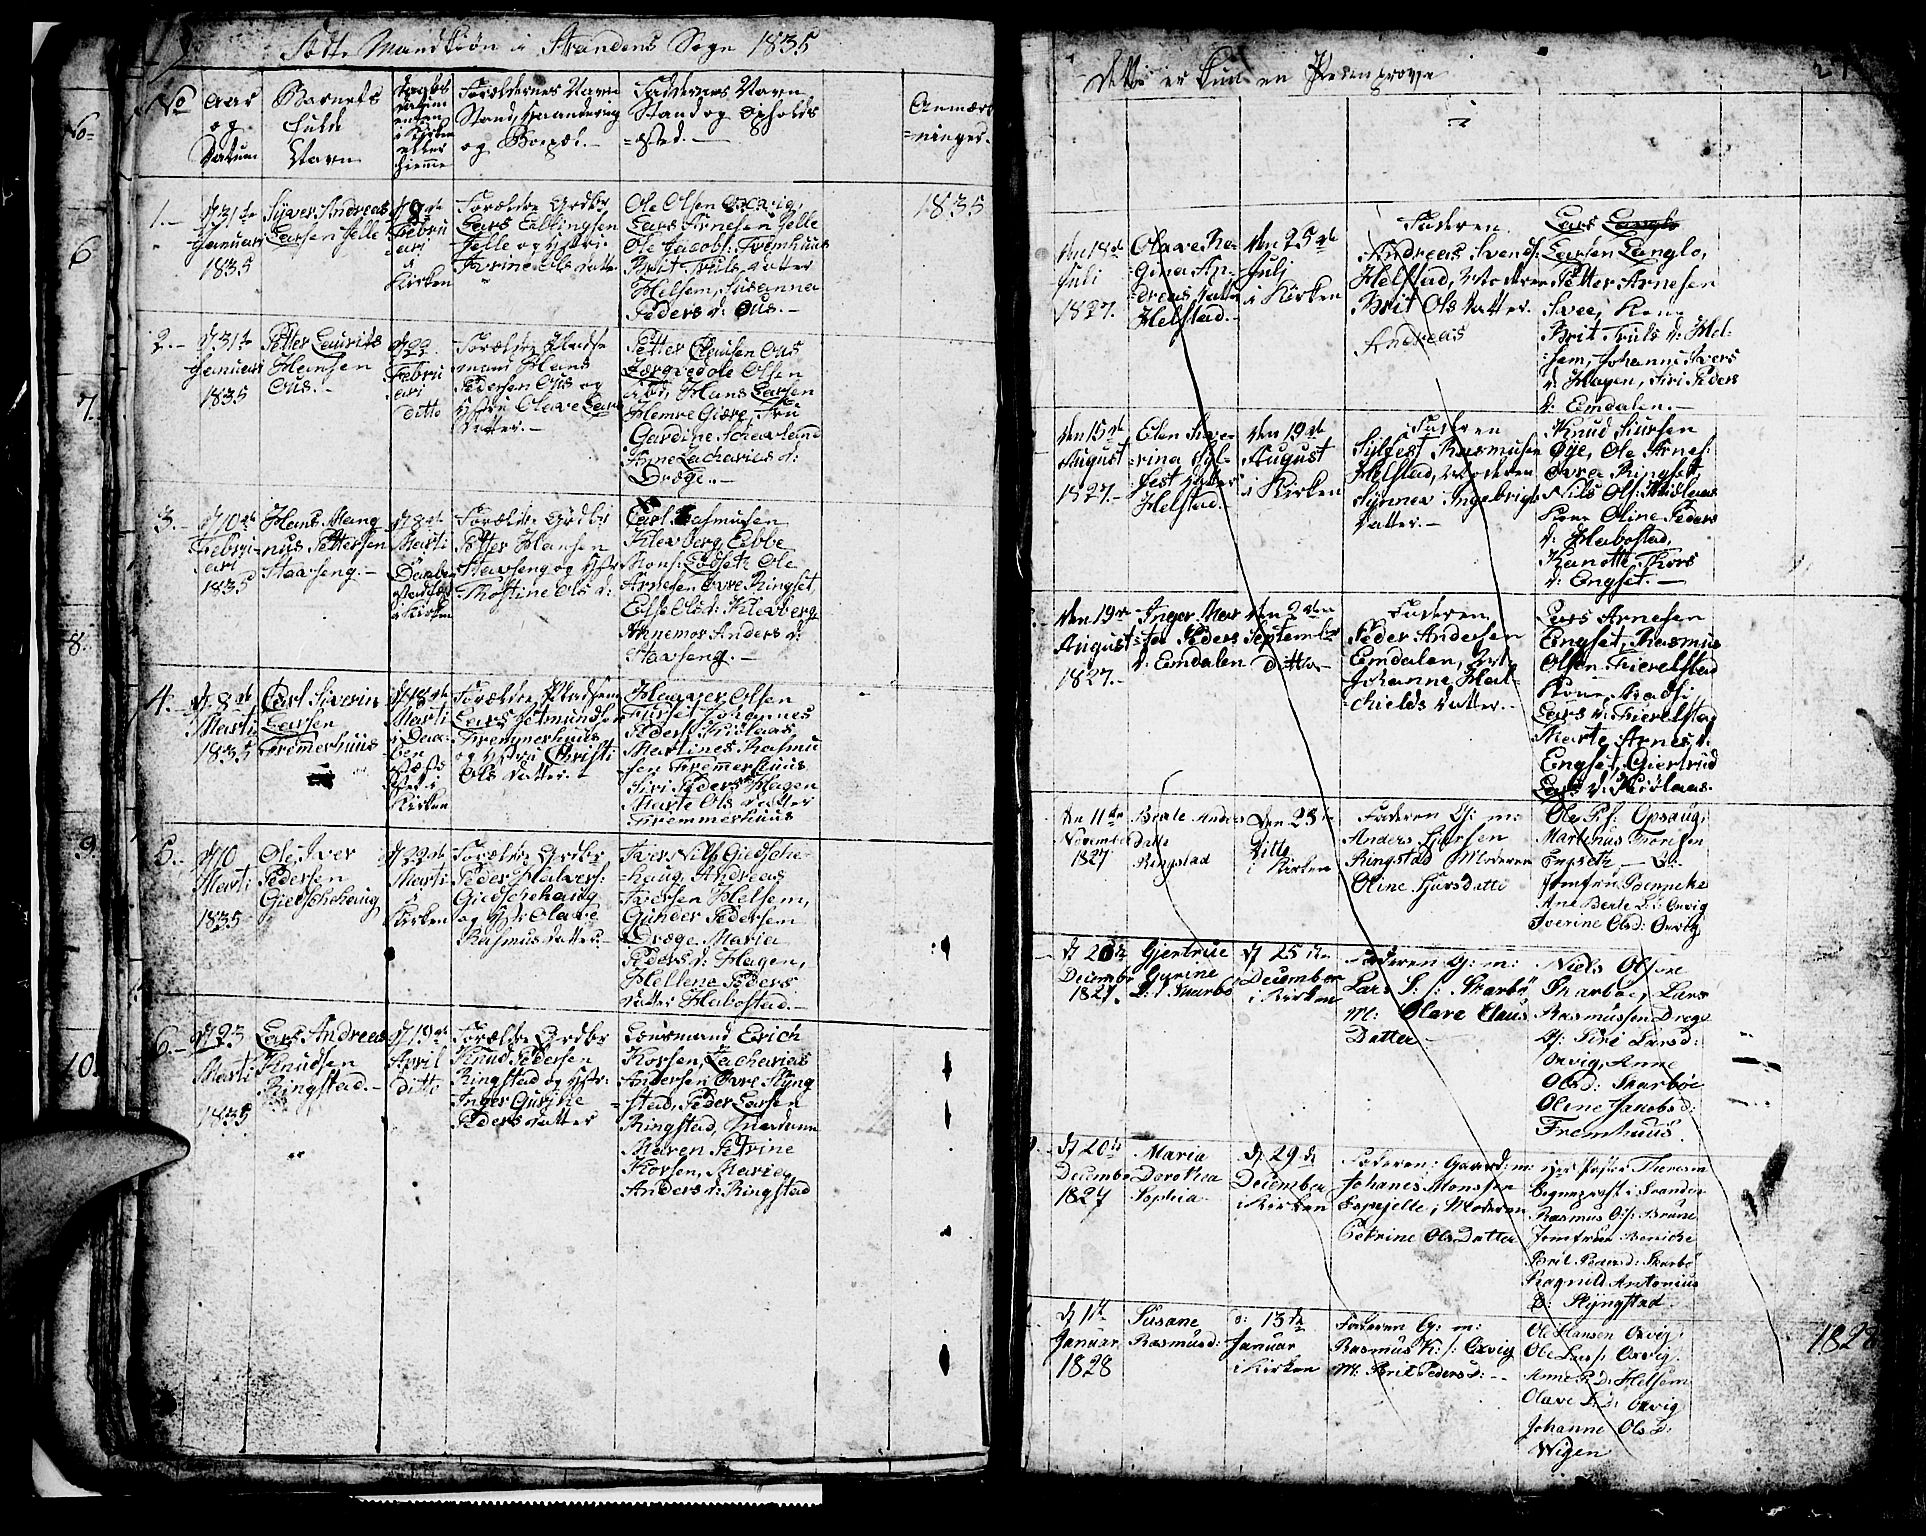 Födte Mandkiøn i Strandens Sogn 1835
No
Aar
og
Datum
Barnets
fulde
Navn
Daabs
datum
enten
i Kirken
eller
hiemme
Forældernes Navn
Stand, Haandtering
og Bopæl.
Faddernes Navn
Stand og Opholds
=sted.
Anmærk
=ninger.
1835
1.
d 31te
Januari
1835
Siver Andreas
Larsen Jelle
d 8de
Febru
ari
i
Kirken
Forældre Grdbr
Lars Ellingsen
Jelle og Hstri
Ivrine Ols datter
Ole Olsen Oxvig,
Lars Arnesen Jelle
Ole Jacobs: Fremhuus
Brit Truls datter
Helsem, Susanna
Peders d: Ous.
2.
d 31te
Januari
1835
Petter Laurits
Hansen
Ous.
d 22
Febru
ari
ditto
Forældre Pladse
mand Hans
Pedersen Ous og
Hstru Olave Lars
datter.
Petter Clausen Ous
Ole Olsen
Hans Larsen
Gardine
Anne Zacharias d:
Dræge.
3.
d 10de
Febru
ari
1835
Hans Mag
nus Pettersen
Stavseng.
d 8de
Marti
Daaben
i Kirken
Forældre Grdbr
Petter Hansen
Stavseng og Hstr
Thostine Ols d:
Carl Rasmusen
Klevberg Ebbe
Mons: Lodseth Ole
Arnesen Øvre Ringset,
Else Ols d: Klevberg
Annemor Anders d:
Stavseng.
4.
d 8de
Marti
1835
Carl Siverin
Larsen
Fremerhuus
d 18de
Marti
Daa
ben
i
Kirken
Forældre Pladsem
Lars
Fremmerhuus
og Hstru Christi
Ols datter.
Olsen
Johannes
Peders Kiølaas,
Martines Rasmu
sen Fremerhuus
Siri Peders d Hagen
Marte Ols datter
Fremmerhuus
5.
d 10
Marti
1835
Ole Iver
Pedersen
Giedschehaug
d 22de
Marti
i
Kirken
Forældre Grdbr
Peder Halvers:
Giedschehaug
og Hstr Olave
Rasmus datter.
Iver Nils Giedsche
haug, Andreas
Iversen Helsem,
Gunder Pedersen
Dræge Maria
Peders d: Hagen,
Hellene Peders
datter Habostad.
6.
d 23
Marti
1835
Lars Andreas
Knudsen
Ringstad.
d 19de
April
ditto
Forældre Grdbr
Knud Pedersen
Ringstad og Hstr:
Inger Gurine
Peders datter
Lensmand Erich
Korsen, Zacharias
Andersen Øvre Ryng
stad, Peder Larsen
Ringstad, Madame
Maren Petrine
Korsen, Maria
Anders d: Ringstad
6
7
8
9
10
Dette er kun en Penneprøve
Den 18de
Juli
1827.
Olave Re
gina An
dreas datter
Helstad.
Den 25de
Julj
i Kirken
Faderen
Andreas Svends:
Helstad, Moderen
Brit Ols datter.
Andreas
Lars Langlo
Larsen Langlo,
Petter Arnesen
Svee, Kone
Brit Truls d: Hel
sem, Johanne Ivers
d: Hagen, Siri Peders
d: Emdalen.
Den 15de
August
1827.
Elen Sive
rina Syl
fest datter
Helstad.
Den 19de
August
i Kirken
Faderen
Sylfest Rasmusen
Helstad, Moderen
Synnev Ingebrigt
datter.
Knud Siursen
Øye, Ole Arnes:
Øvre Ringset
Nils Ols: Kiølaas
Kone Oline Peders
d: Habostad,
Kors
d: Engset.
Den 19de
August
1827.
Inger Mar
ta Peders
d: Emdalen
Den 2den
September
Ditto
Faderen
Peder Andersen
Emdalen, Hst:
Johanne Hal
childs datter.
Lars Arnesen
Engset, Rasmus
Olsen Fiærelstad
Kone Madsi
Lars d: Fiærelstad
Marte Arnes d:
Engset, Giertrud
Lars d: Kiølaas.
Den 11te
November
1827
Berte Anders
datte
Ringstad
Den 23
Ditto
i Kirken
Faderen G: m:
Anders Siursen
Ringstad Moderen
Oline Siursdatte
Ole P: Opsaug,
Martinus Toresen
Engseth
Jomfru Bennecke
Ane Berte L: d: Oxvig
Iverine Ols d: Oxvig
d 26de
December
1827.
Gjertrue
Gurine
L: d Skarbø
d 25de
December
i Kirken
Faderen G: m:
Lars S: Skarbø
M: Olave Claus
Datter
Niels Olsen
Skarbøe, Lars
Rasmussen Drege
Siri Lars d:
Oxvig, Anne
Ols d: Skarbøe
Oline Jacobs d:
Fremhuus.
d 20de
December
1827
Maria
Dorothea
Sophia
d 29de
December
i Kirken
Faderen: Gaard: m:
Johanes Monssen
Espejelle, Moderen
Petrine Ols Datter
Sogneprest i Stranden
Rasmus Brune
Jomfrue Beniche
Brit Peders d: Skarbø
Ragnild Antonius
D: Ryngstad.
d 1te
Januar
1828
Susane
Rasmus d:
d: 13de
Januar
i Kirken
Faderen G: m:
Rasmus K: Oxvig
M: Brit Peders d:
Ole Hansen Oxvig,
Ole Lars: Oxvig.
Anne P. D: Helsem
Olave L: D: Oxvig
Johanne Ols D:
Wigen
1828